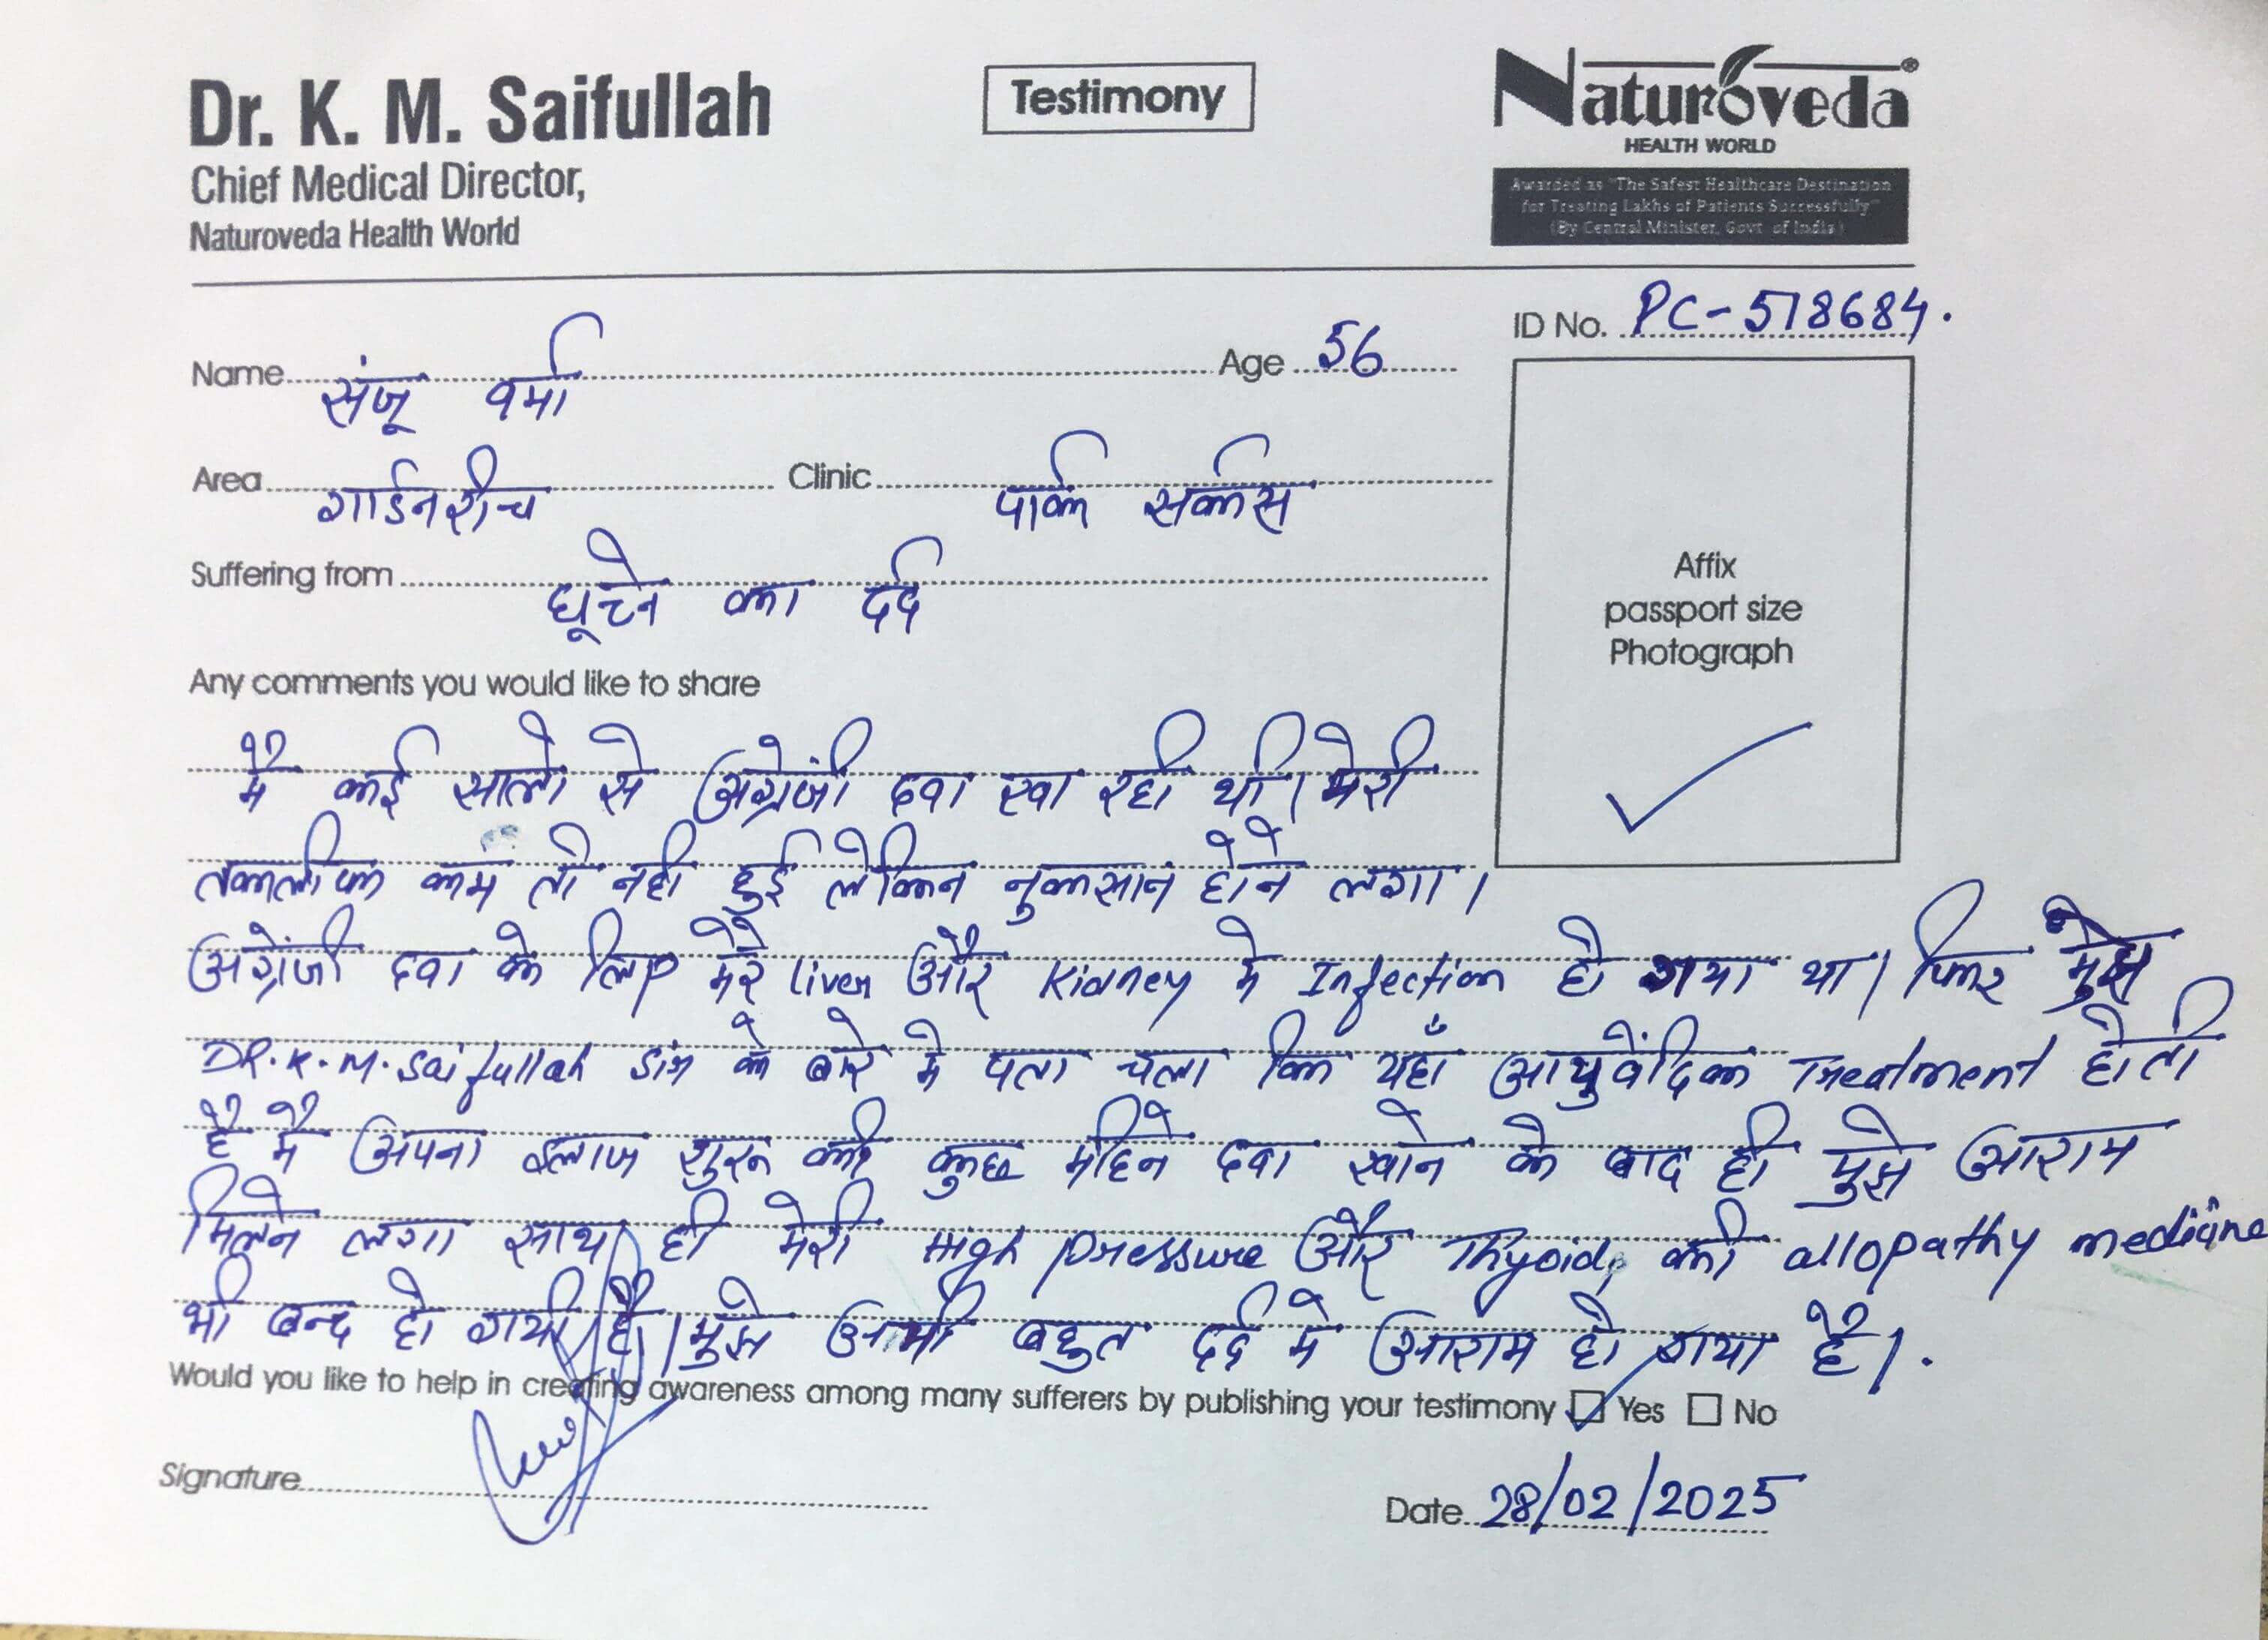 Dr. K. M. Saifullah
Chief Medical Director,
Naturoveda Health World
Testimony
Naturoveda®
HEALTH WORLD
Awarded as "The Safest Healthcare Destination
for Treating Lakhs of Patients Successfully"
(By Central Minister, Govt of India)
ID No. PC-518684.
Name संजू वर्मा Age 56
Area गार्डनरीच Clinic पार्क सर्कस
Suffering from घूटने का दर्द
Affix
passport size
Photograph
Any comments you would like to share
मै कई सालो से अंग्रेजी दवा खा रही थी। मेरी
तकलीफ कम तो नही हुई लेकिन नुकसान होने लगा।
अंग्रेजी दवा के लिए मेरे liver और Kidney मे Infection हो गया था। फिर मुझे
DR. K. M. Saifullah के बारे मे पता चला कि यहाँ आयुर्वेदिक Treatment होती
है मै अपना इलाज शुरू की कुछ महिने दवा खाने के बाद ही मुझे आराम
मिलने लगा साथ ही मेरी High pressure और Thyoid की allopathy medicine
भी बन्द हो गयी है। मुझे अभी बहुत दर्द मे आराम हो गया है।.
Would you like to help in creating awareness among many sufferers by publishing your testimony Yes No
Signature
Date 28/02/2025